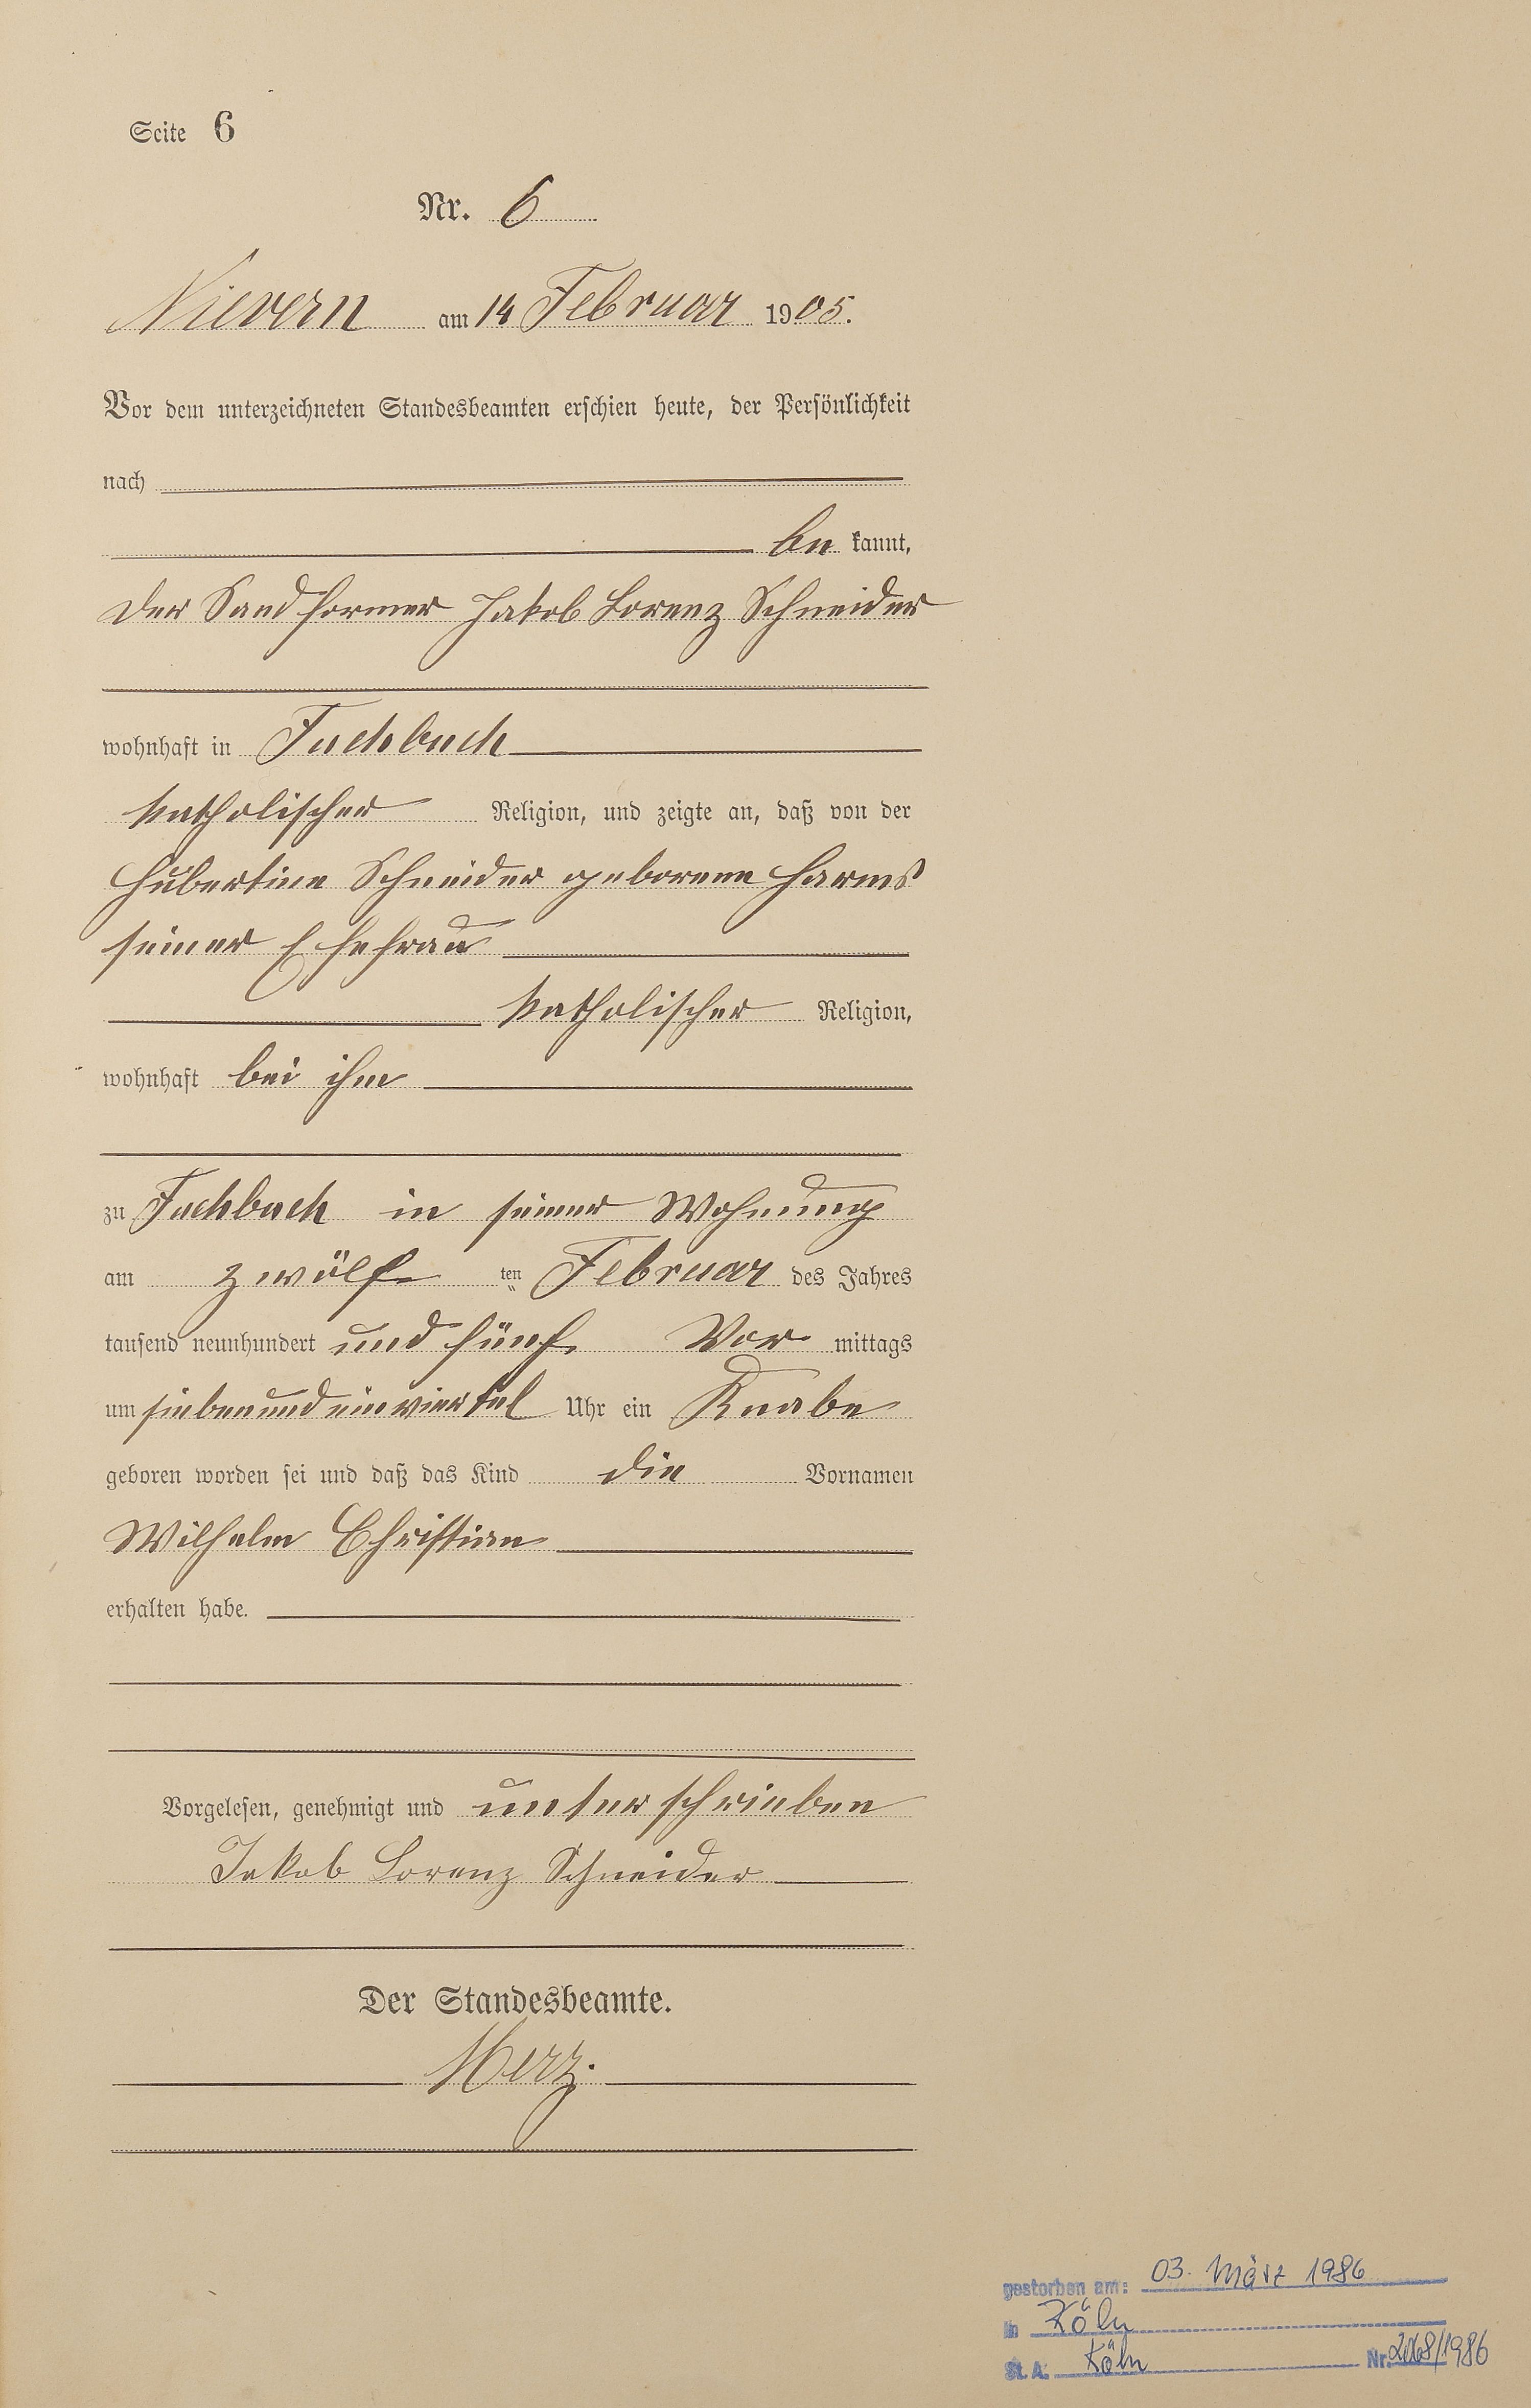 Seite 6
Nr. 6
Nievern am 14 Februar 1905.
Vor dem unterzeichneten Standesbeamten erschien heute, der Persönlichkeit
nach
be kannt,
der Sandformer Jakob Lorenz Schneider
wohnhaft in Fachbach
katholischer Religion, und zeigte an, daß von der
Hubertine Schneider geborene Harms
seiner Ehefrau
katholischer Religion,
wohnhaft bei ihm
zu Fachbach in seiner Wohnung
am zwölf ten Februar des Jahres
tausend neunhundert und fünf Vor mittags
um sieben und ein viertel Uhr ein Knabe
geboren worden sei und daß das Kind die Vornamen
Wilhelm Christian
erhalten habe.
Vorgelesen, genehmigt und unterschrieben
Jakob Lorenz Schneider
Der Standesbeamte.
Merz.
gestorben am: 03. März 1986
in Köln
St. A. Köln Nr. 2068/1986